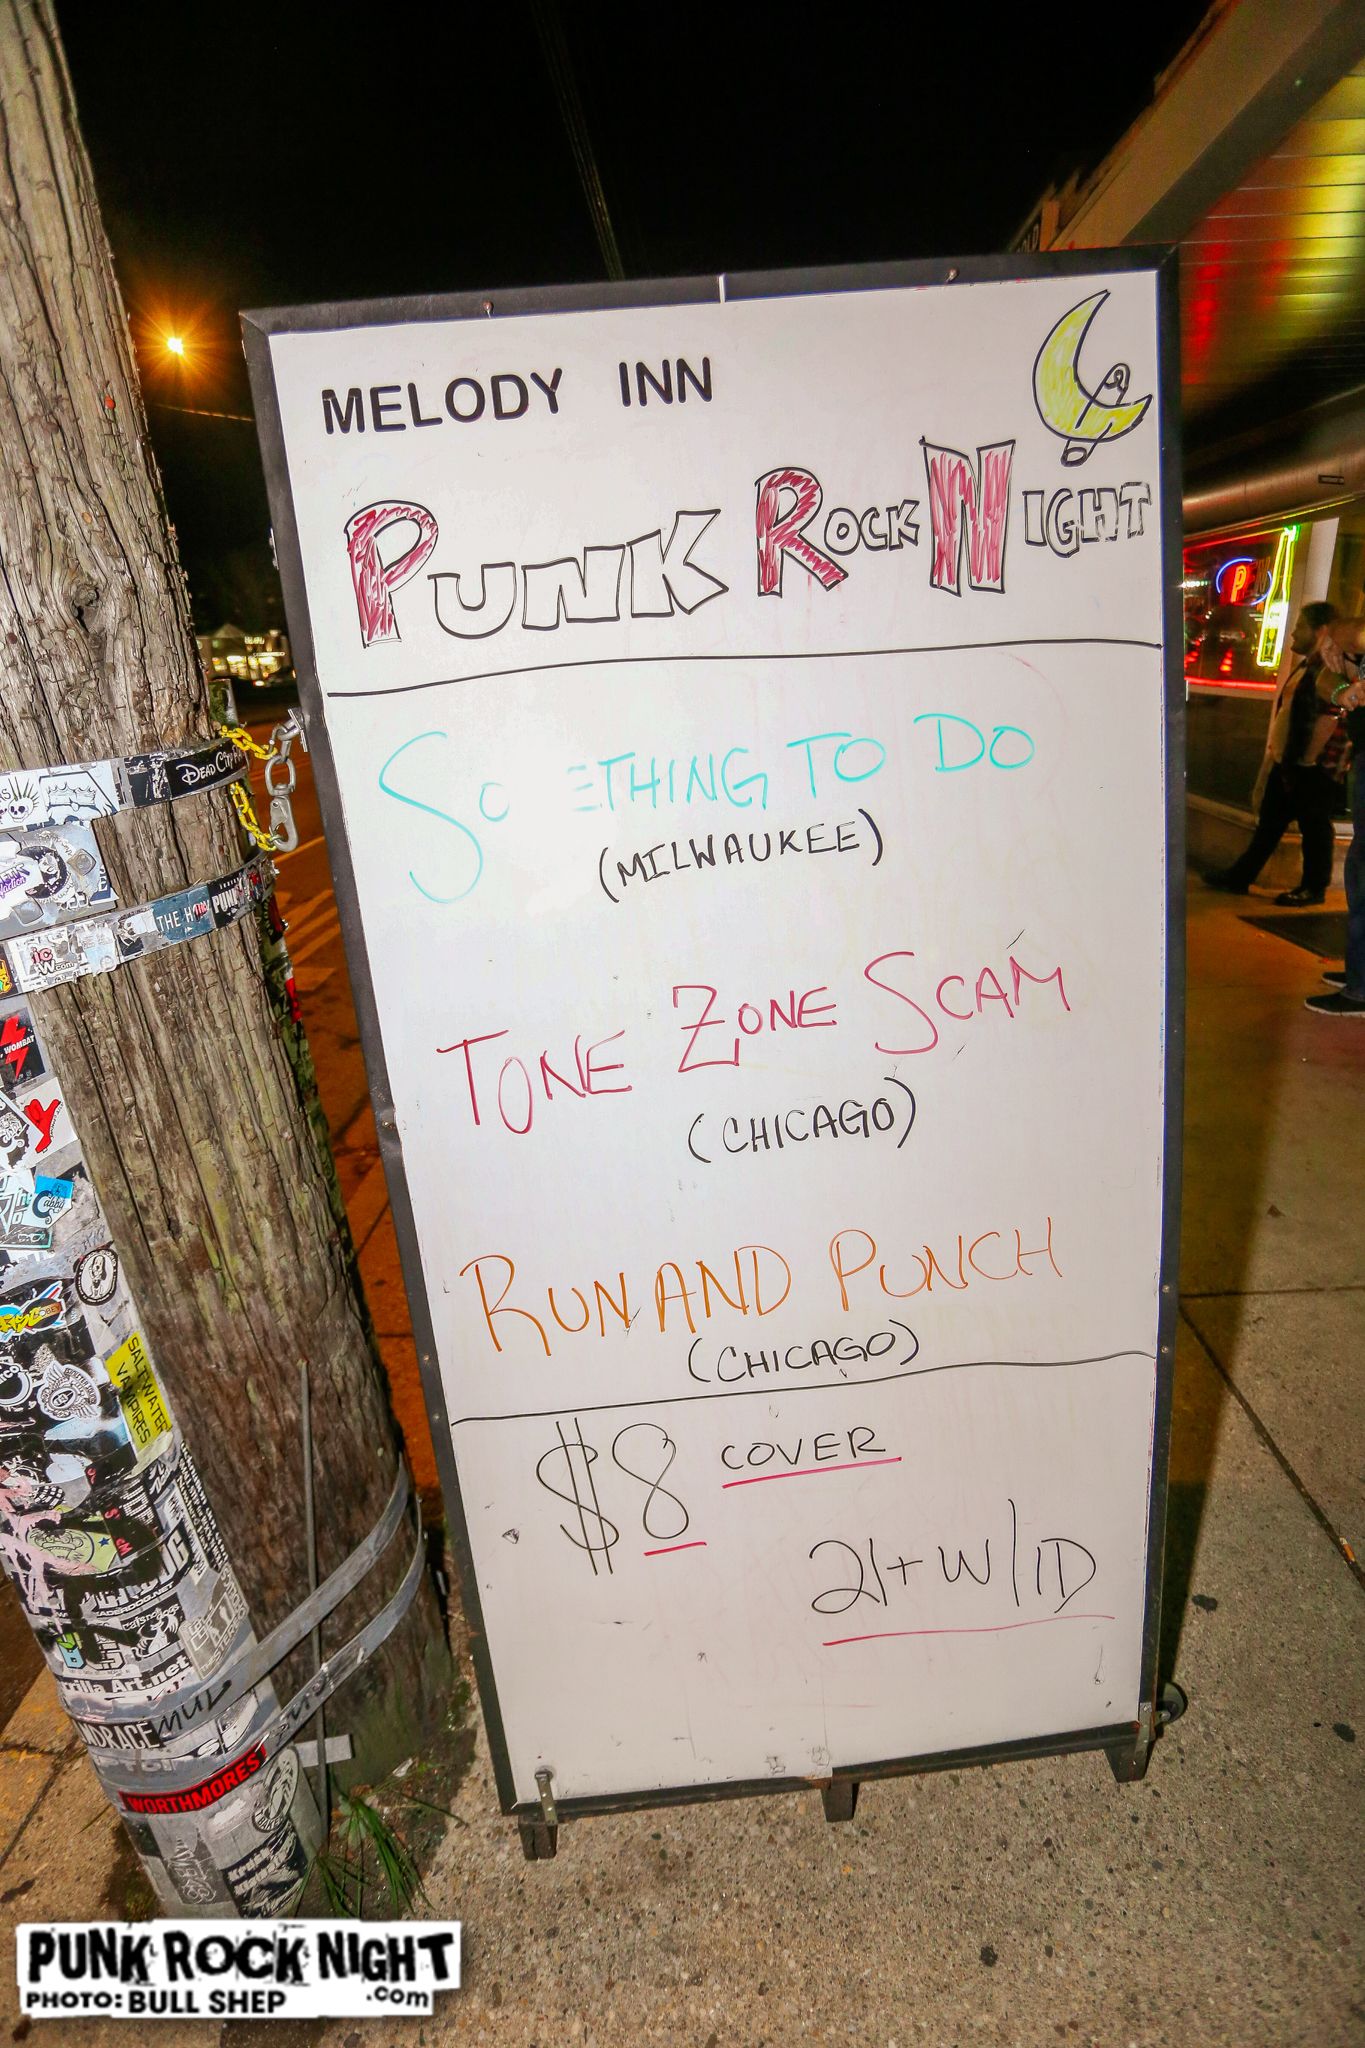 MELODY INN
PUNK ROCK NIGHT
SOMETHING TO DO
(MILWAUKEE)
TONE ZONE SCAM
(CHICAGO)
RUN AND PUNCH
(CHICAGO)
$8 COVER
21+ W/ID
DEAD CITY
THE H
PUNK
WOMBAT
Cabby
SALTWATER
VAMPIRES
rrilla Art.net
NDRAGE
WORTHMORES
P
PUNK ROCK NIGHT
.com
PHOTO: BULL SHEP